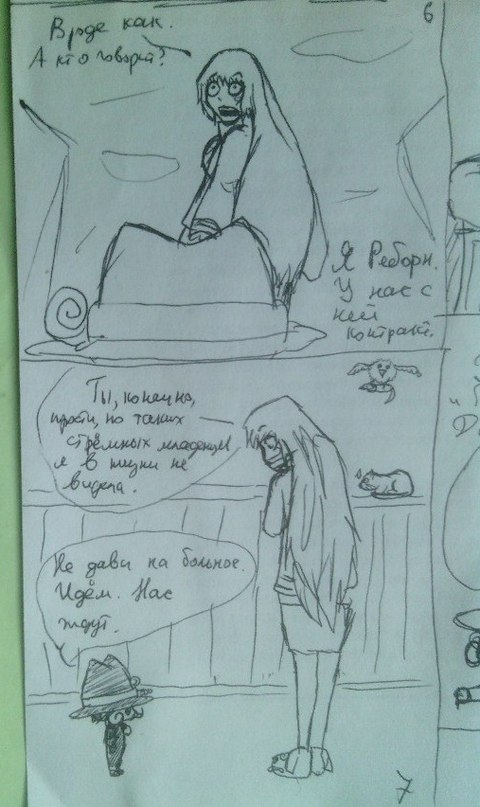 Вроде как.
А кто говорит?
6
Я Реборн.
У нас с
ней
контракт.
Ты, конечно,
прости, но таких
стрёмных младенцев
я в жизни не
видела.
Не дави на больное.
Идём. Нас
ждут.
7